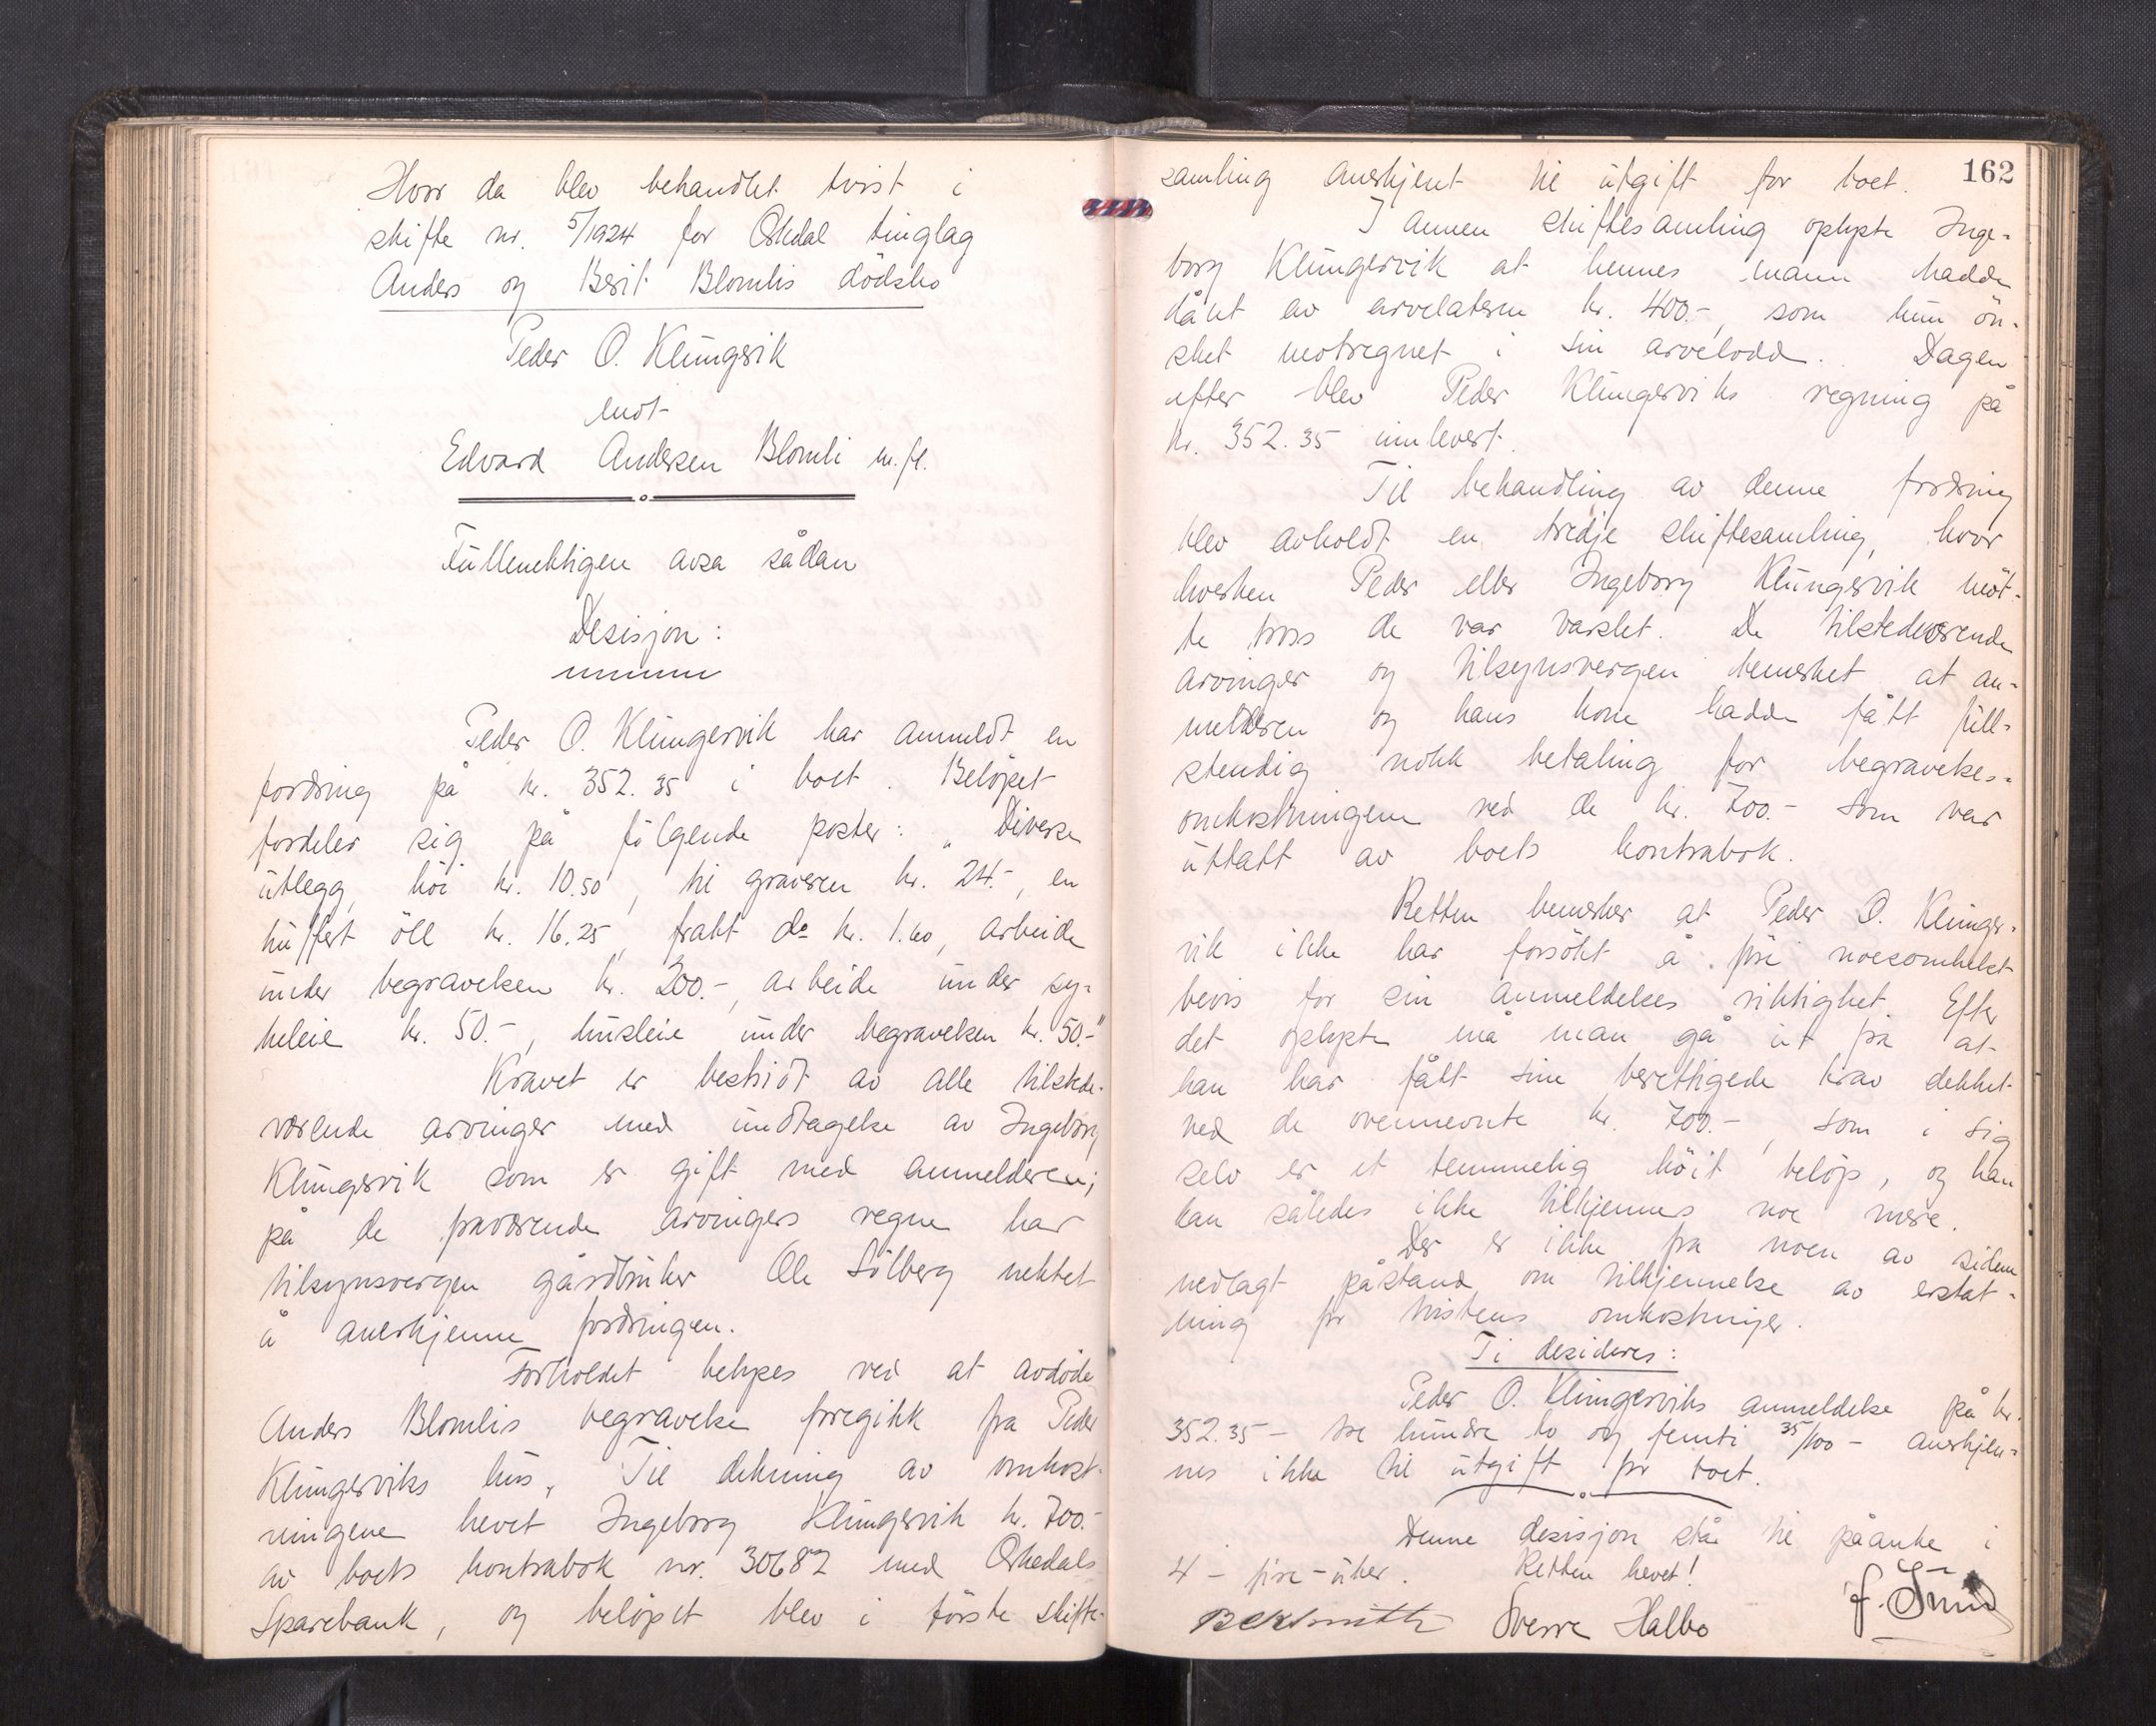 Hvor da blev behandlet tvist i
skifte nr. 5/1924 for Orkdal tinglag
Anders og Berit Blomlis dödsbo
Peder O. Klungervik
mot
Edvard Andersen Blomli m.fl.
Fullmektigen avsa sådan
Desisjon:
Peder O. Klungervik har anmeldt en
fordring på kr. 352.35 i boet. Belöpet
fordeler sig på fölgende poster: "Diverse
utlegg, höi kr. 10.50, til graveren kr. 24.-, en
kuffert öll kr. 16.25, frakt do kr. 1.60, arbeide
under begravelsen kr. 200.-, arbeide under sy-
keleie kr. 50.-, husleie under begravelsen kr. 50.-"
Kravet er bestridt av alle tilstede-
værende arvinger med undtagelse av Ingeborg
Klungervik som er gift med anmelderen;
på de fraværende arvingers vegne har
tilsynsvergen gårdbruker Ole Solberg nektet
å anerkjenne fordringen.
Forholdet belyses ved at avdöde
Anders Blomlis begravelse foregikk fra Peder
Klungerviks hus. Til dekning av omkost-
ningene hevet Ingeborg Klungervik kr. 700.-
av boets kontrabok nr. 30682 med Orkedals
Sparebank, og belöpet blev i förste skifte-
162
samling anerkjent til utgift for boet.
I annen skiftesamling oplyste Inge-
borg Klungervik at hennes mann hadde
lånt av arvelateren kr. 400.-, som hun ön-
sket motregnet i sin arvelodd. Dagen
efter blev Peder Klungerviks regning på
kr. 352.35 innlevert.
Til behandling av denne fordring
blev avholdt en tredje skiftesamling, hvor
hverken Peder eller Ingeborg Klungervik möt-
te tross de var varslet. De tilstedeværende
arvinger og tilsynsvergen bemerket at an-
melderen og hans kone hadde fått full-
stendig nokk betaling for begravelses-
omkostningene ved de kr. 700.- som var
uttatt av boets kontrabok.
Retten bemerker at Peder O. Klunger-
vik ikke har forsökt å före noesomhelst
bevis for sin anmeldelses riktighet. Efter
det oplyste må man gå ut fra at
han har fått sine berettigede krav dekket
ved de ovennevnte kr. 700.-, som i sig
selv er et temmelig höit belöp, og han
kan således ikke tilkjennes noe mere.
Der er ikke fra noen av sidene
nedlagt påstand om tilkjennelse av erstat-
ning for tvistens omkostninger.
Ti desideres:
Peder O. Klungerviks anmeldelse på kr.
352.35 - tre hundre to og femti 35/100 - anerkjen-
nes ikke til utgift for boet.
Denne desisjon står til påanke i
4 - fire - uker. Retten hevet!
Sverre Halbo